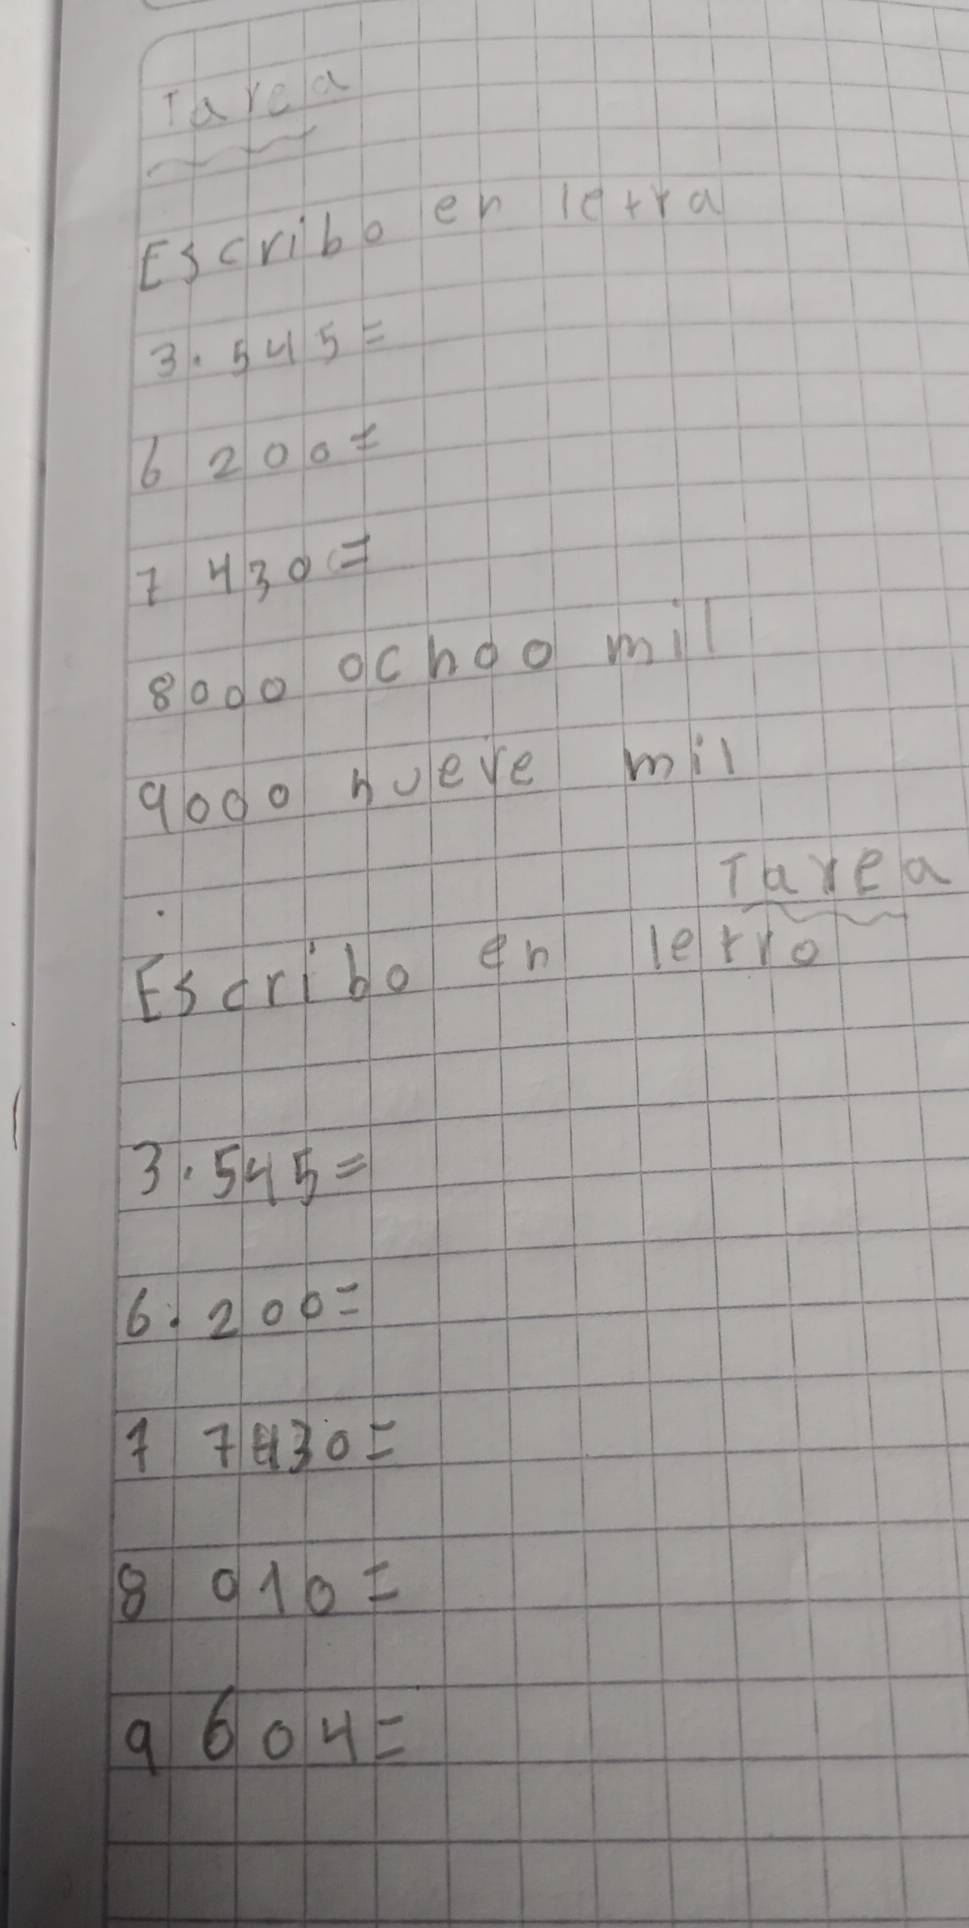 Tarea
Escribo en letra
3.545=
6 200=
7 430=
8000 ochoo mil
9000 nueve mil
Tarea
Escribo en letro
3.545=
6.200=
7 7430=
8 010=
9 604=